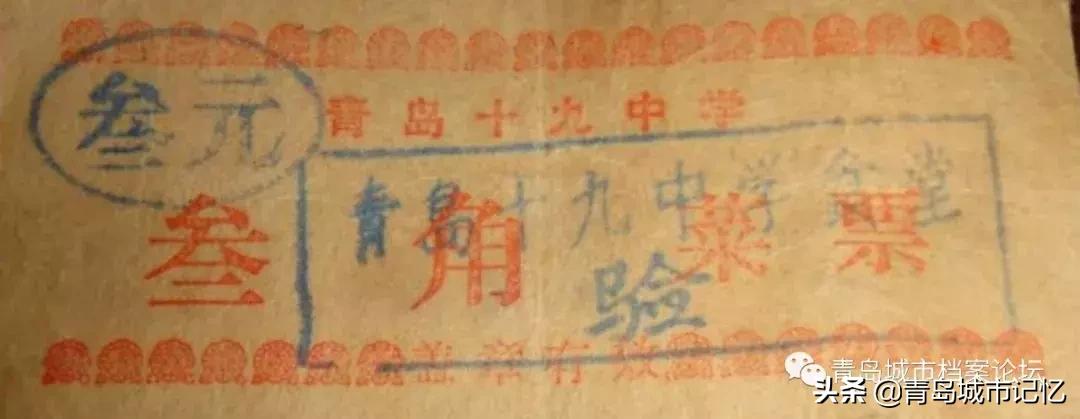 叁元
青岛十九中学
青岛十九中学食堂
叁角菜票
验
盖章有效
青岛城市档案论坛
头条 @青岛城市记忆